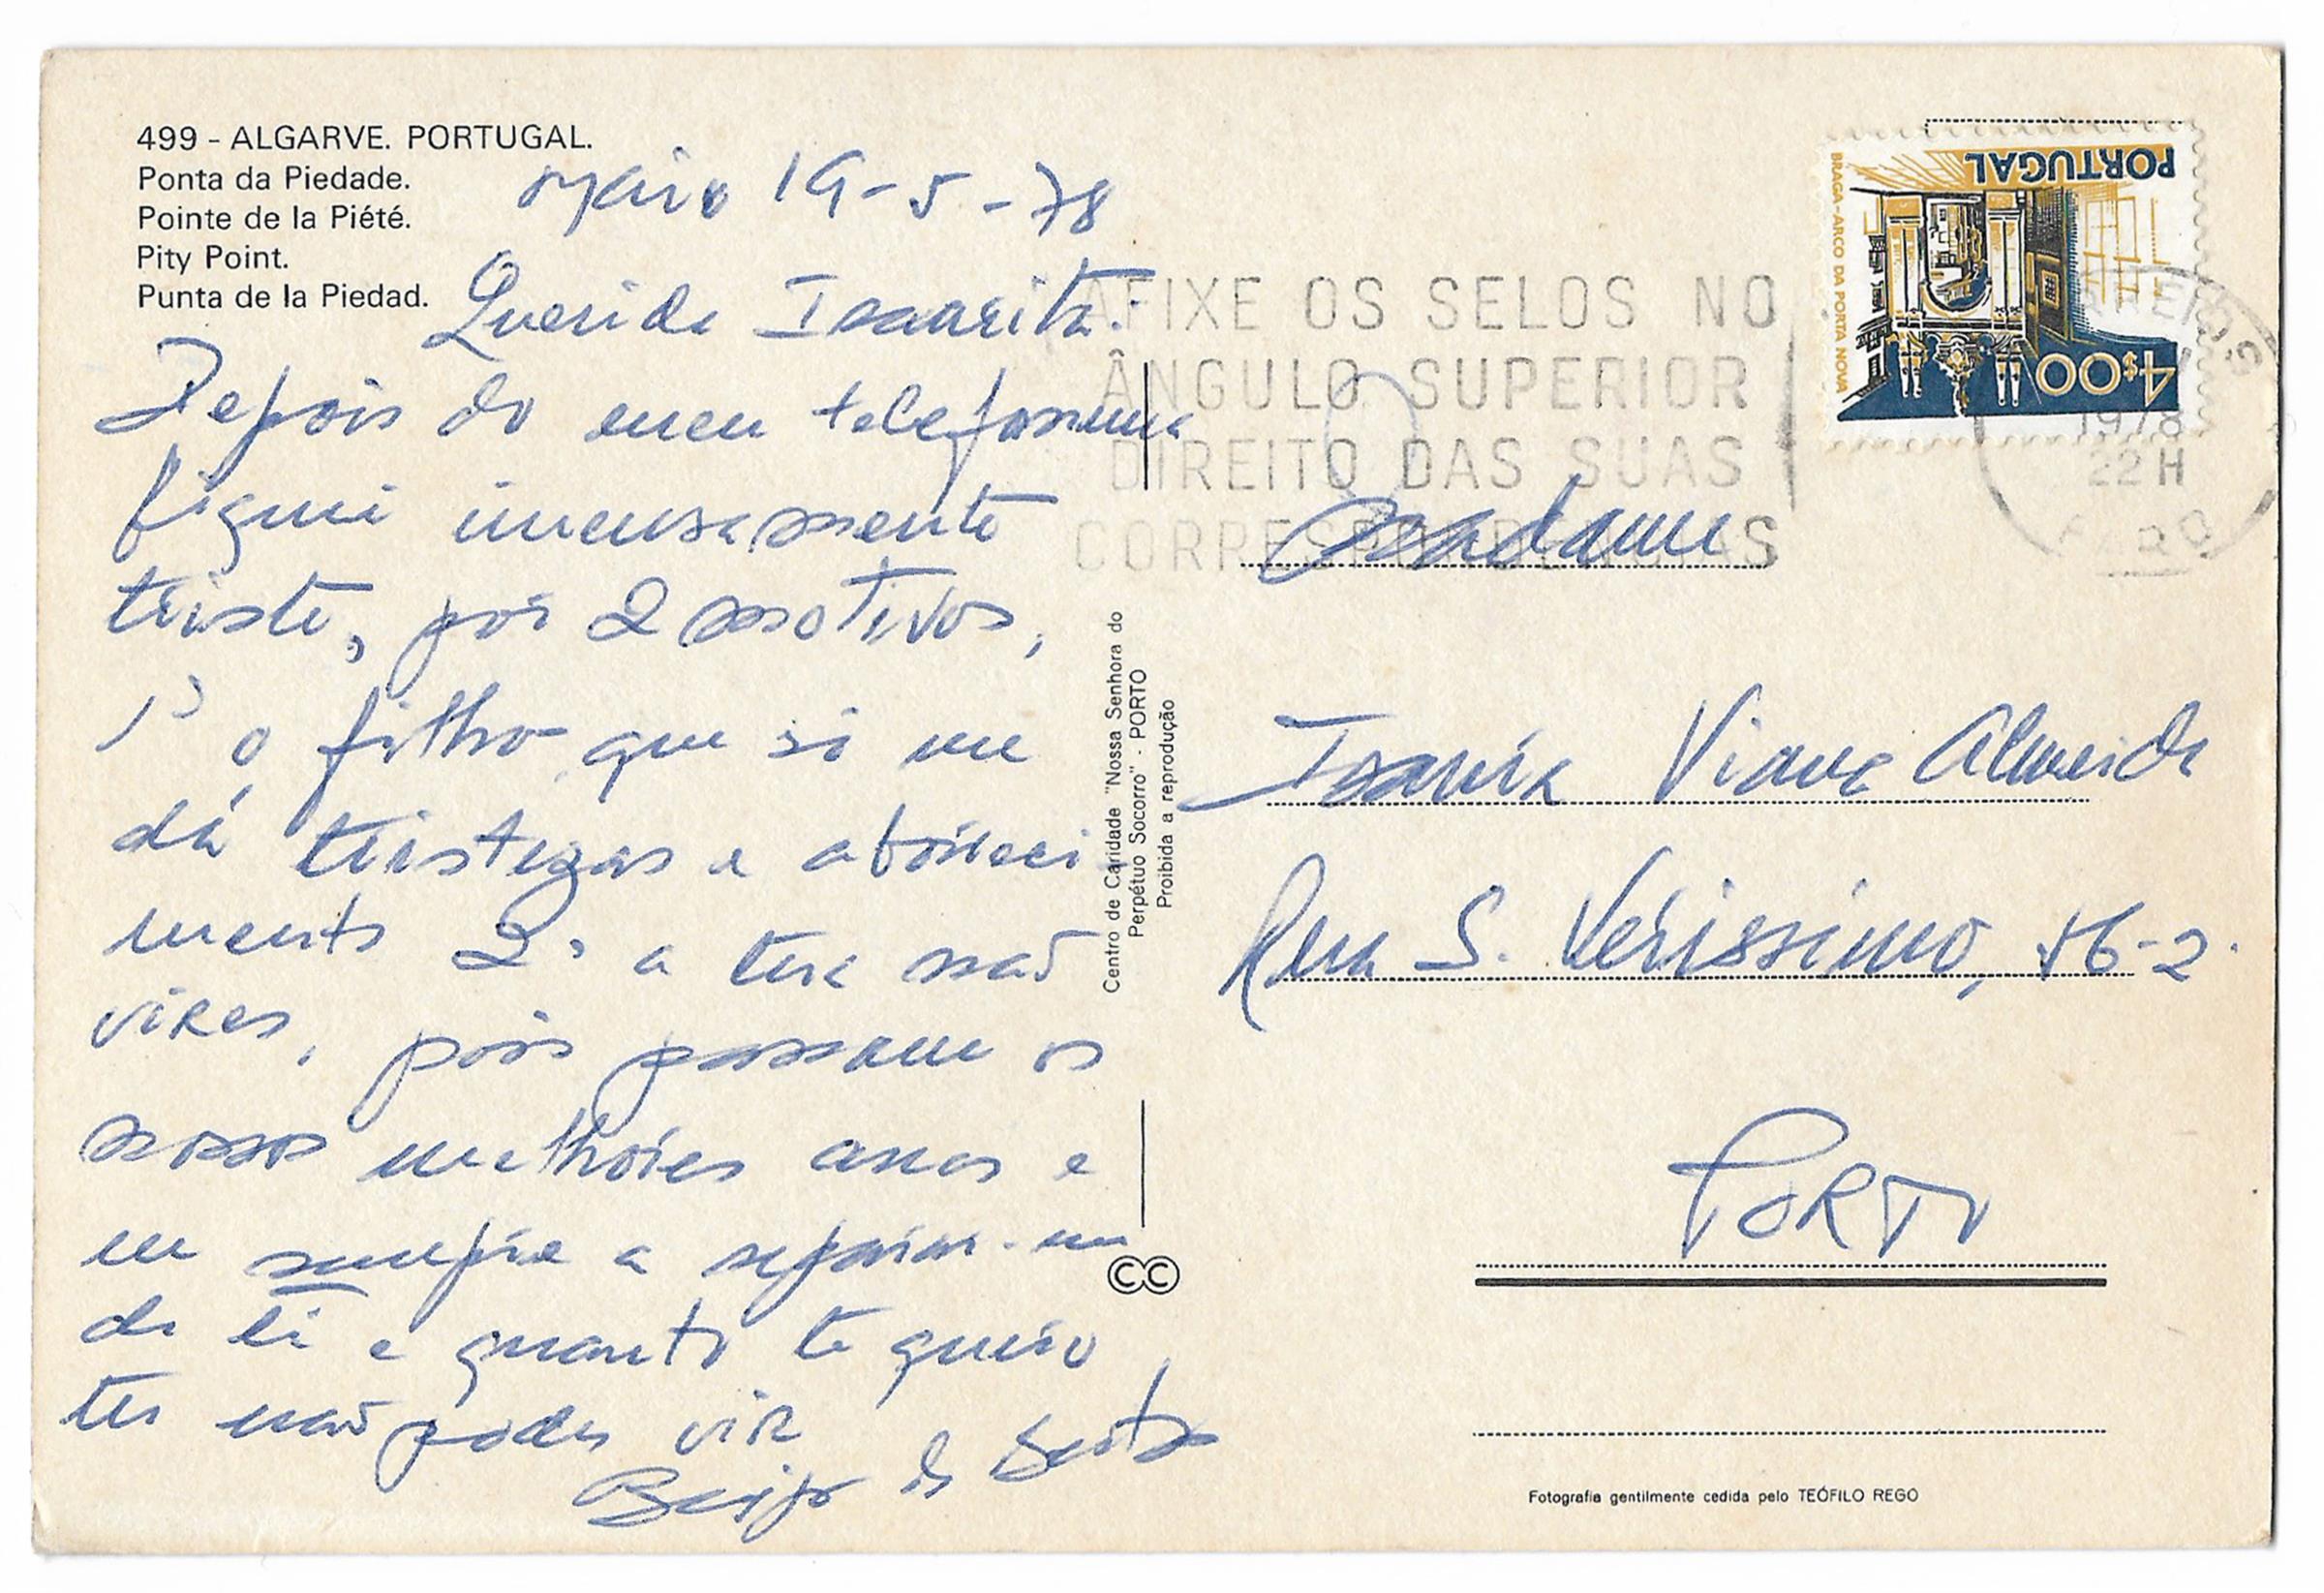 499 - ALGARVE. PORTUGAL.
Ponta da Piedade.
Pointe de la Piété.
Pity Point.
Punta de la Piedad.
Maio 19-5-78
Querida Isaurita:
Depois do meu telefonema
fiquei imensamente
triste, por 2 motivos,
1º o filho que só me
dá tristezas e aborreci
mento 2º a tua não
vires, pois passam os
nossos melhores anos e
eu sempre a separar-me
de ti e quanto te quero
ter não podes vir
Beijo da
Centro de Caridade "Nossa Senhora do
Perpétuo Socorro" - PORTO
Proibida a reprodução
CC
PORTUGAL
BRAGA-ARCO DA PORTA NOVA
4$00
AFIXE OS SELOS NO
ÂNGULO SUPERIOR
DIREITO DAS SUAS
CORRESPONDENCIAS
CORREIOS
1978
22 H
FARO
Madame
Isaura Viana Almeida
Rua S. Veríssimo, 46-2.
PORTO
Fotografia gentilmente cedida pelo TEÓFILO REGO